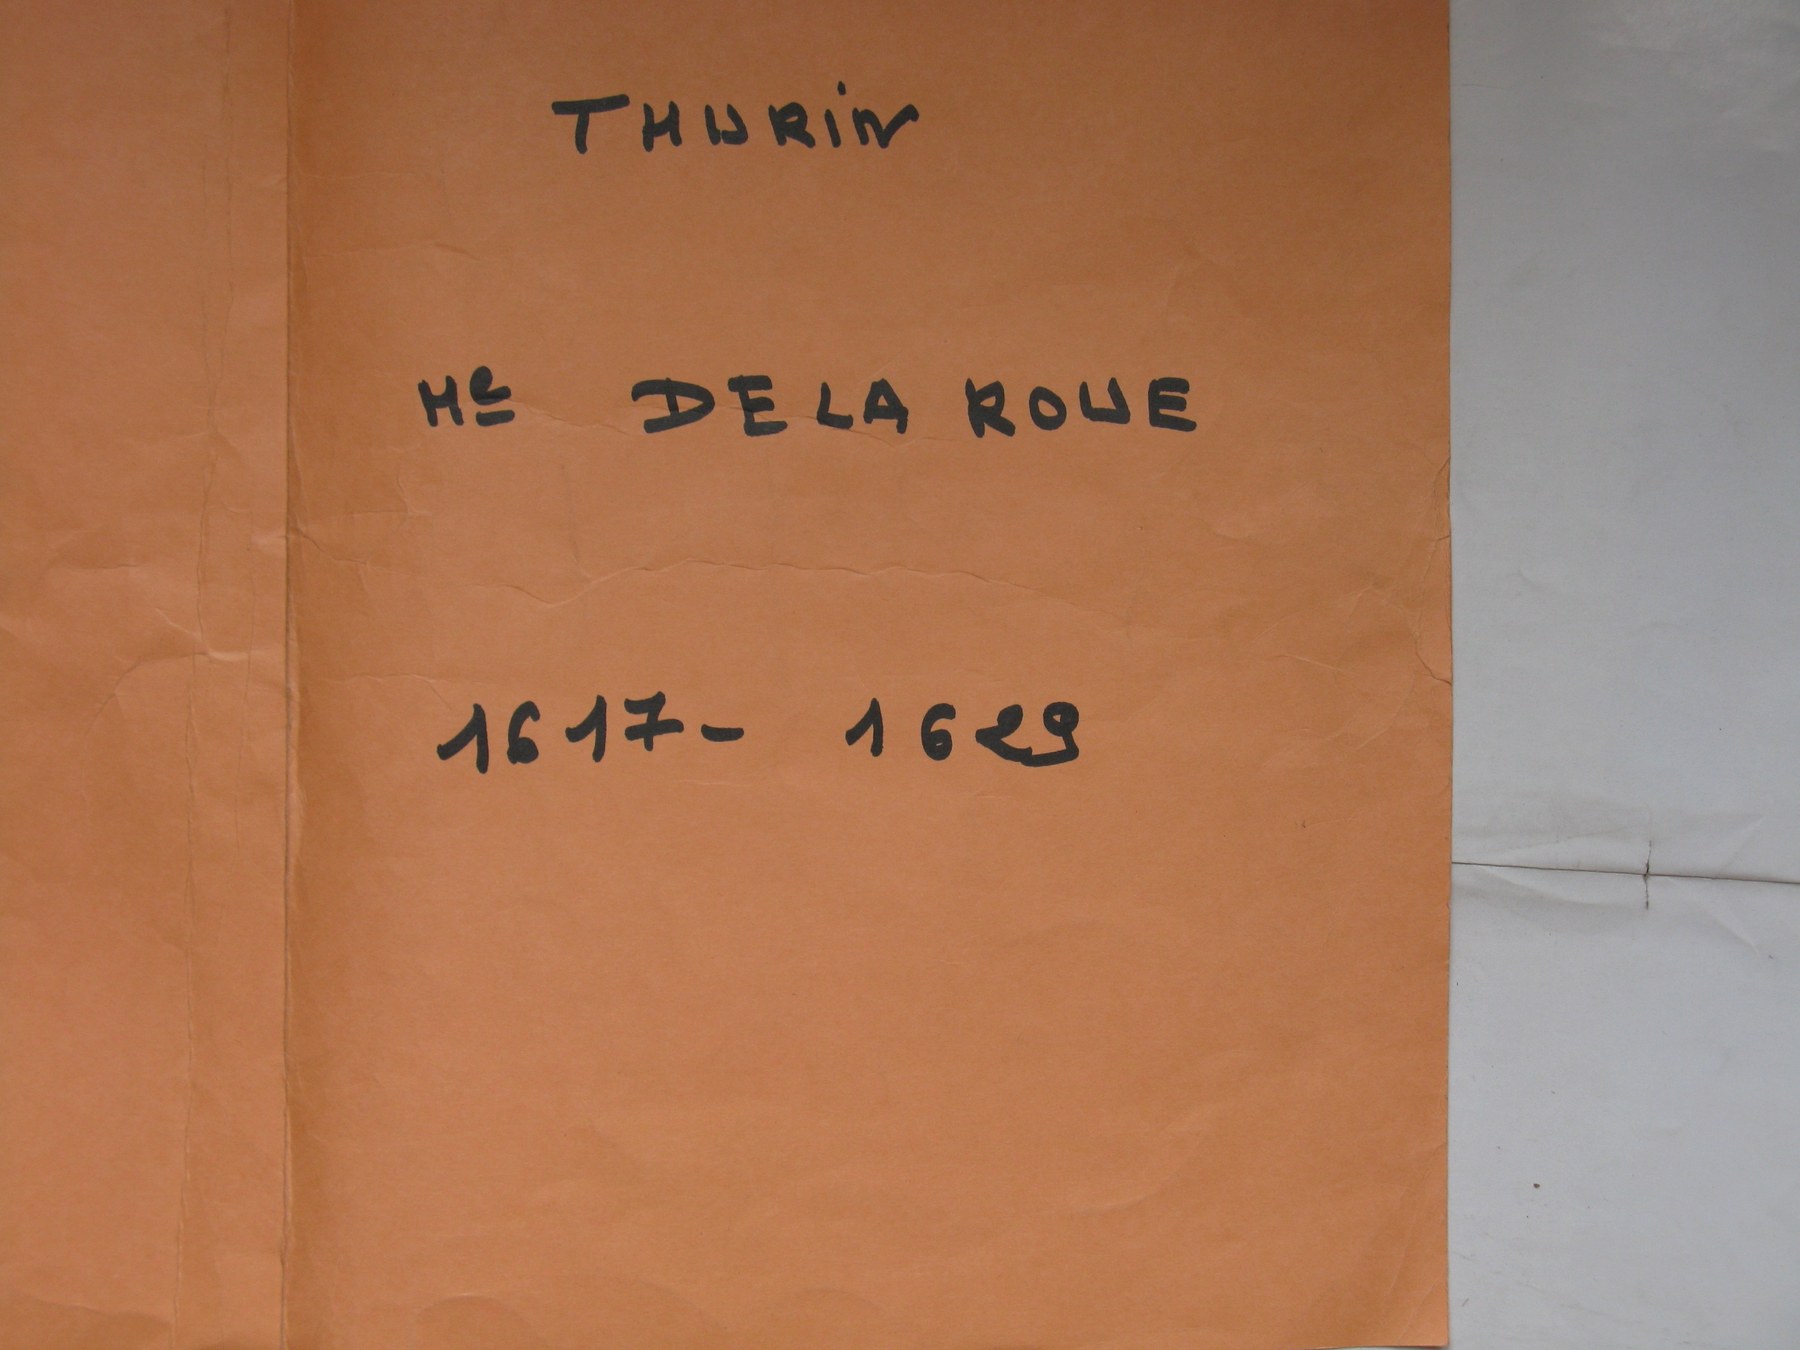 THURIN
Me DE LA ROUE
1617- 1629